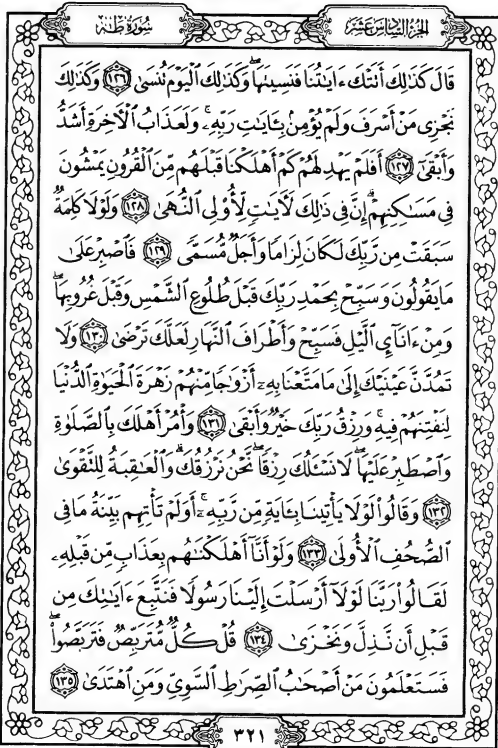 سُورَةُ طٰهٰ
الجُزْءُ السَّادِسَ عَشَرَ
قَالَ كَذَٰلِكَ أَتَتْكَ ءَايَٰتُنَا فَنَسِيتَهَا ۖ وَكَذَٰلِكَ ٱلْيَوْمَ تُنسَىٰ ١٢٦ وَكَذَٰلِكَ
نَجْزِى مَنْ أَسْرَفَ وَلَمْ يُؤْمِنۢ بِـَٔايَٰتِ رَبِّهِۦ ۚ وَلَعَذَابُ ٱلْءَاخِرَةِ أَشَدُّ
وَأَبْقَىٰٓ ١٢٧ أَفَلَمْ يَهْدِ لَهُمْ كَمْ أَهْلَكْنَا قَبْلَهُم مِّنَ ٱلْقُرُونِ يَمْشُونَ
فِى مَسَٰكِنِهِمْ ۗ إِنَّ فِى ذَٰلِكَ لَءَايَٰتٍ لِّأُو۟لِى ٱلنُّهَىٰ ١٢٨ وَلَوْلَا كَلِمَةٌ
سَبَقَتْ مِن رَّبِّكَ لَكَانَ لِزَامًا وَأَجَلٌ مُّسَمًّى ١٢٩ فَٱصْبِرْ عَلَىٰ
مَا يَقُولُونَ وَسَبِّحْ بِحَمْدِ رَبِّكَ قَبْلَ طُلُوعِ ٱلشَّمْسِ وَقَبْلَ غُرُوبِهَا ۖ
وَمِنْ ءَانَآئِ ٱلَّيْلِ فَسَبِّحْ وَأَطْرَافَ ٱلنَّهَارِ لَعَلَّكَ تَرْضَىٰ ١٣٠ وَلَا
تَمُدَّنَّ عَيْنَيْكَ إِلَىٰ مَا مَتَّعْنَا بِهِۦٓ أَزْوَٰجًا مِّنْهُمْ زَهْرَةَ ٱلْحَيَوٰةِ ٱلدُّنْيَا
لِنَفْتِنَهُمْ فِيهِ ۚ وَرِزْقُ رَبِّكَ خَيْرٌ وَأَبْقَىٰ ١٣١ وَأْمُرْ أَهْلَكَ بِٱلصَّلَوٰةِ
وَٱصْطَبِرْ عَلَيْهَا ۖ لَا نَسْـَٔلُكَ رِزْقًا ۖ نَّحْنُ نَرْزُقُكَ ۗ وَٱلْعَٰقِبَةُ لِلتَّقْوَىٰ
١٣٢ وَقَالُوا۟ لَوْلَا يَأْتِينَا بِـَٔايَةٍ مِّن رَّبِّهِۦٓ ۚ أَوَلَمْ تَأْتِهِم بَيِّنَةُ مَا فِى
ٱلصُّحُفِ ٱلْأُولَىٰ ١٣٣ وَلَوْ أَنَّآ أَهْلَكْنَٰهُم بِعَذَابٍ مِّن قَبْلِهِۦ
لَقَالُوا۟ رَبَّنَا لَوْلَآ أَرْسَلْتَ إِلَيْنَا رَسُولًا فَنَتَّبِعَ ءَايَٰتِكَ مِن
قَبْلِ أَن نَّذِلَّ وَنَخْزَىٰ ١٣٤ قُلْ كُلٌّ مُّتَرَبِّصٌ فَتَرَبَّصُوا۟ ۖ
فَسَتَعْلَمُونَ مَنْ أَصْحَٰبُ ٱلصِّرَٰطِ ٱلسَّوِىِّ وَمَنِ ٱهْتَدَىٰ ١٣٥
٣٢١